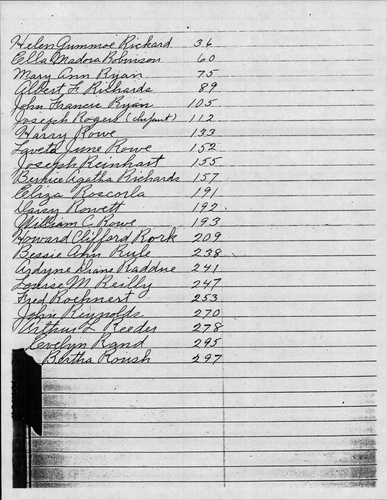 Helen Gummoe Rickard 36
Ella Madora Robinson 60
Mary Ann Ryan 75
Albert F. Richards 89
John Francis Ryan 105
Joseph Rogers 112
Harry Rowe 133
Laveta June Rowe 152
Joseph Reinhart 155
Bernice Agatha Richards 157
Eliza Roscorla 191
Daisy Rowett 192
William C. Rowe 193
Howard Clifford Rork 209
Bessie Ann Rule 238
Ardyne Diane Raddue 241
Louise M Reilly 247
Fred Roehnert 253
John Reynolds 270
Arthur L Reeder 278
Evelyn Rand 295
Bertha Roush 297